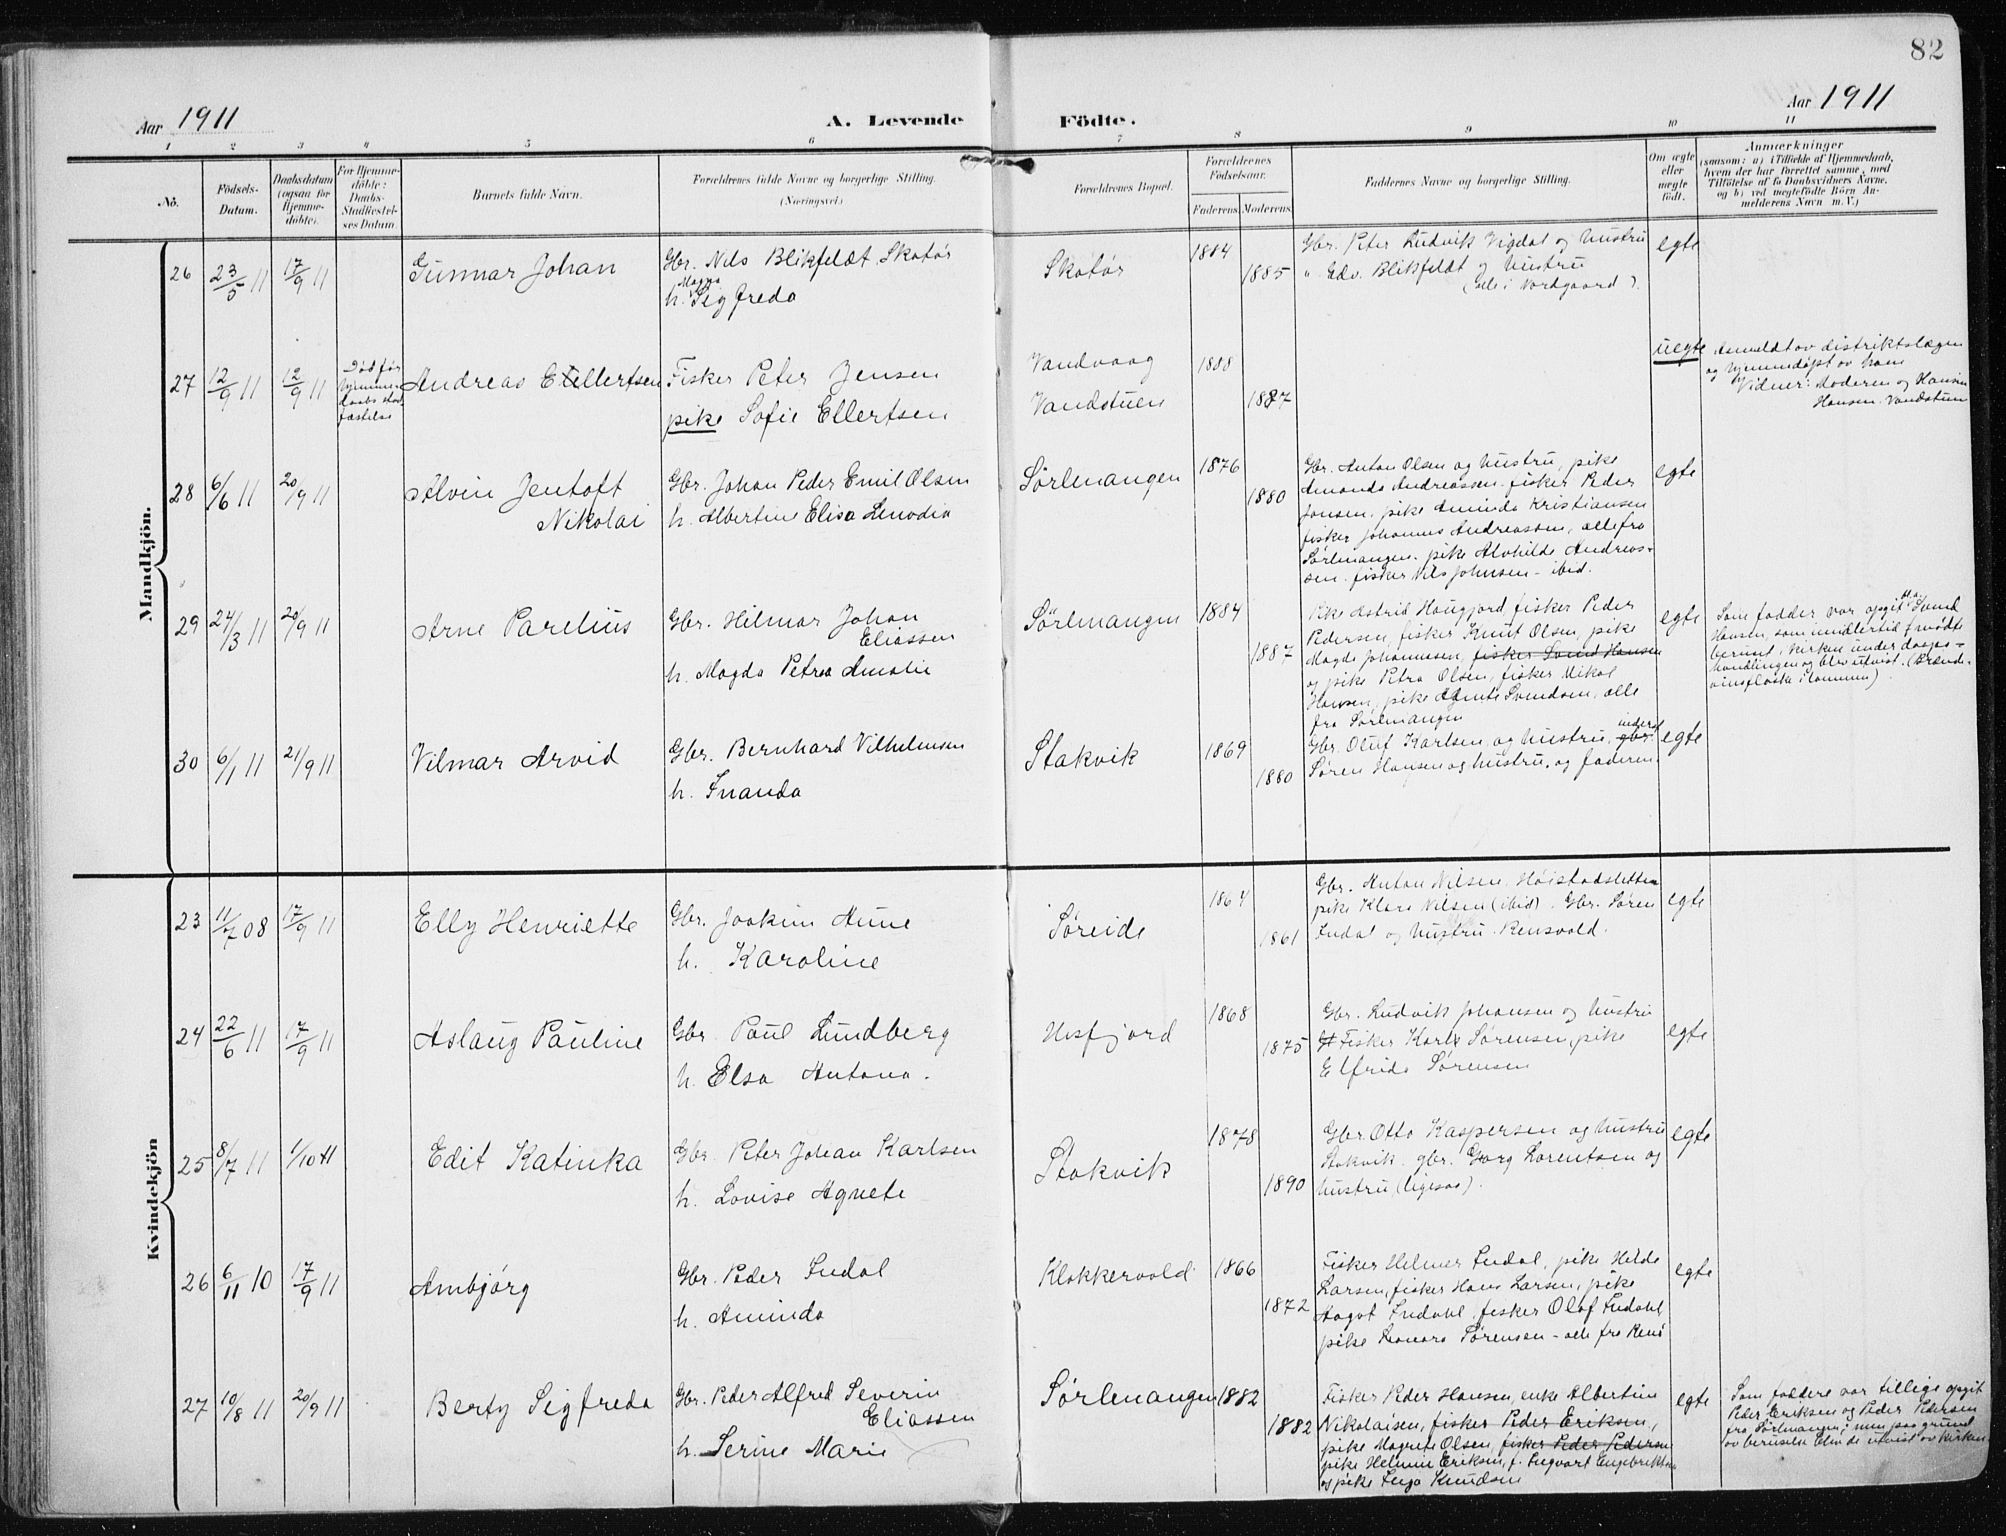 82
Aar 1911
A. Levende Födte.
Aar 1911
1 2 3 4 5 6 7 8 9 10 11
No.
Födsels-Datum.
Daabsdatum (ogsaa for Hjemmedöbte).
For Hjemmedöbte: Daabs-Stadfæstelses Datum
Barnets fulde Navn.
Forældrenes fulde Navne og borgerlige Stilling.
(Næringsvei.)
Forældrenes Bopæl.
Forældrenes Födselsaar.
Faderens. Moderens.
Faddernes Navne og borgerlige Stilling.
Om ægte eller uægte født.
Anmærkninger
(saasom: a) i Tilfælde af Hjemmedaab,
hvem der har forrettet samme, med
Tilföielse af fo Daabsvidners Navne,
og b) ved uegtefödte Börn An-
melderens Navn m. V.)
Mandkjön.
26 23/5 11 17/9 11 Gunnar Johan
Gbr. Nils Blikfeldt Skotør
Magna
h. Sigfreda
Skotør 1884 1885
Gbr. Peter Ludvik Vigdal og hustru
" Edv. Blikfeldt og hustru
(alle i Nordgaard).
egte
27 12/9 11 12/9 11
Død før
hjemme-
daabs stad
fæstelse
Andreas Ellertsen
Fisker Peter Jensen
pike Sofie Ellertsen
Vandvaag
Vandstuen
1888 1887
uegte
Anmeldt av distriktslægen
og hjemmedøpt av ham
Vidner: Moderen og Hansin
Hansen. Vandstuen
28 6/6 11 20/9 11 Alvin Jentoft
Nikolai
Gbr. Johan Peder Emil Olsen
h. Albertine Elisa Lenodia
Sørlenangen 1876 1880
Gbr. Anton Olsen og hustru, pike
Amanda Andreassen. fisker Peder
Jensen, pike Aminda Kristiansen
fisker Johannes Andreassen, alle fra
Sørlenangen. pike Alvhilde Andreas-
sen. fisker Nils Johnsen - ibid.
egte
29 24/3 11 20/9 11 Arne Parelius
Gbr. Hilmar Johan
Eliassen
h. Magda Petrea Amalie
Sørlenangen 1884 1887
Pike Astrid Haugjord, fisker Peder
Pedersen, fisker Knut Olsen, pike
Magda Johannesen, fisker Svend Hansen
og pike Petra Olsen, fisker Mikal
Hansen, pike Agnete Svendsen, alle
fra Sørlenangen
egte
Som fadder var opgit Svend
Hansen, som imidlertid møtte
beruset i kirken under daaps-
handlingen og blev utvist. (Brænde-
vinsflaske i lommen).
30 6/1 11 21/9 11 Vilmar Arvid
Gbr. Bernhard Vilhelmsen
h. Inanda
Stakvik 1869 1880
inderst
Gbr. Oluf Karlsen og hustru, gbr.
Søren Hansen og hustru. og faderen.
egte
Kvindekjön
23 11/7 08 17/9 11 Elly Henriette
Gbr. Joakim Aune
h. Karoline
Søreide 1864 1861
Gbr. Anton Nilsen, Høistadsletten
pike Klara Nilsen (ibid). Gbr. Søren
Indal og hustru. Rensvold.
egte
24 22/6 11 17/9 11 Aslaug Pauline
Gbr. Paul Lundberg
h. Elsa Antona.
Ulsfjord 1868 1875
Gbr. Ludvik Johansen og hustru
Fisker Karl Sørensen, pike
Elfrida Sørensen
egte
25 8/7 11 1/10 11 Edit Katinka
Gbr. Peter Johan Karlsen
h. Lovise Agnete
Stakvik 1878 1890
Gbr. Otto Kaspersen og hustru
Stakvik. gbr. Georg Lorentsen og
hustru (ligesaa).
egte
26 6/11 10 17/9 11 Ambjørg
Gbr. Peder Indal
h. Aminda
Klokkervold 1866 1872
Fisker Helmer Indal, pike Helda
Larsen, fisker Hans Larsen, pike
Aagot Indahl, fisker Olaf Indahl,
pike Leonora Sørensen - alle fra Rens
egte
27 10/8 11 20/9 11 Berty Sigfreda
Gbr. Peder Alfred Severin
Eliassen
h. Serine Marie
Sørlenangen 1882 1882
Fisker Peder Hansen, enke Albertine
Nikolaisen, fisker Peder Eriksen,
pike Magrete Olsen, fisker Peder Pedersen
pike Helmine Eriksen, f. Ingvart Engebriktsen
og pike Inga Knudsen
egte
Som faddere var tillige opgit
Peder Eriksen og Peder Pedersen
fra Sørlenangen; men paa grund
av beruselse blev de utvist av kirken.